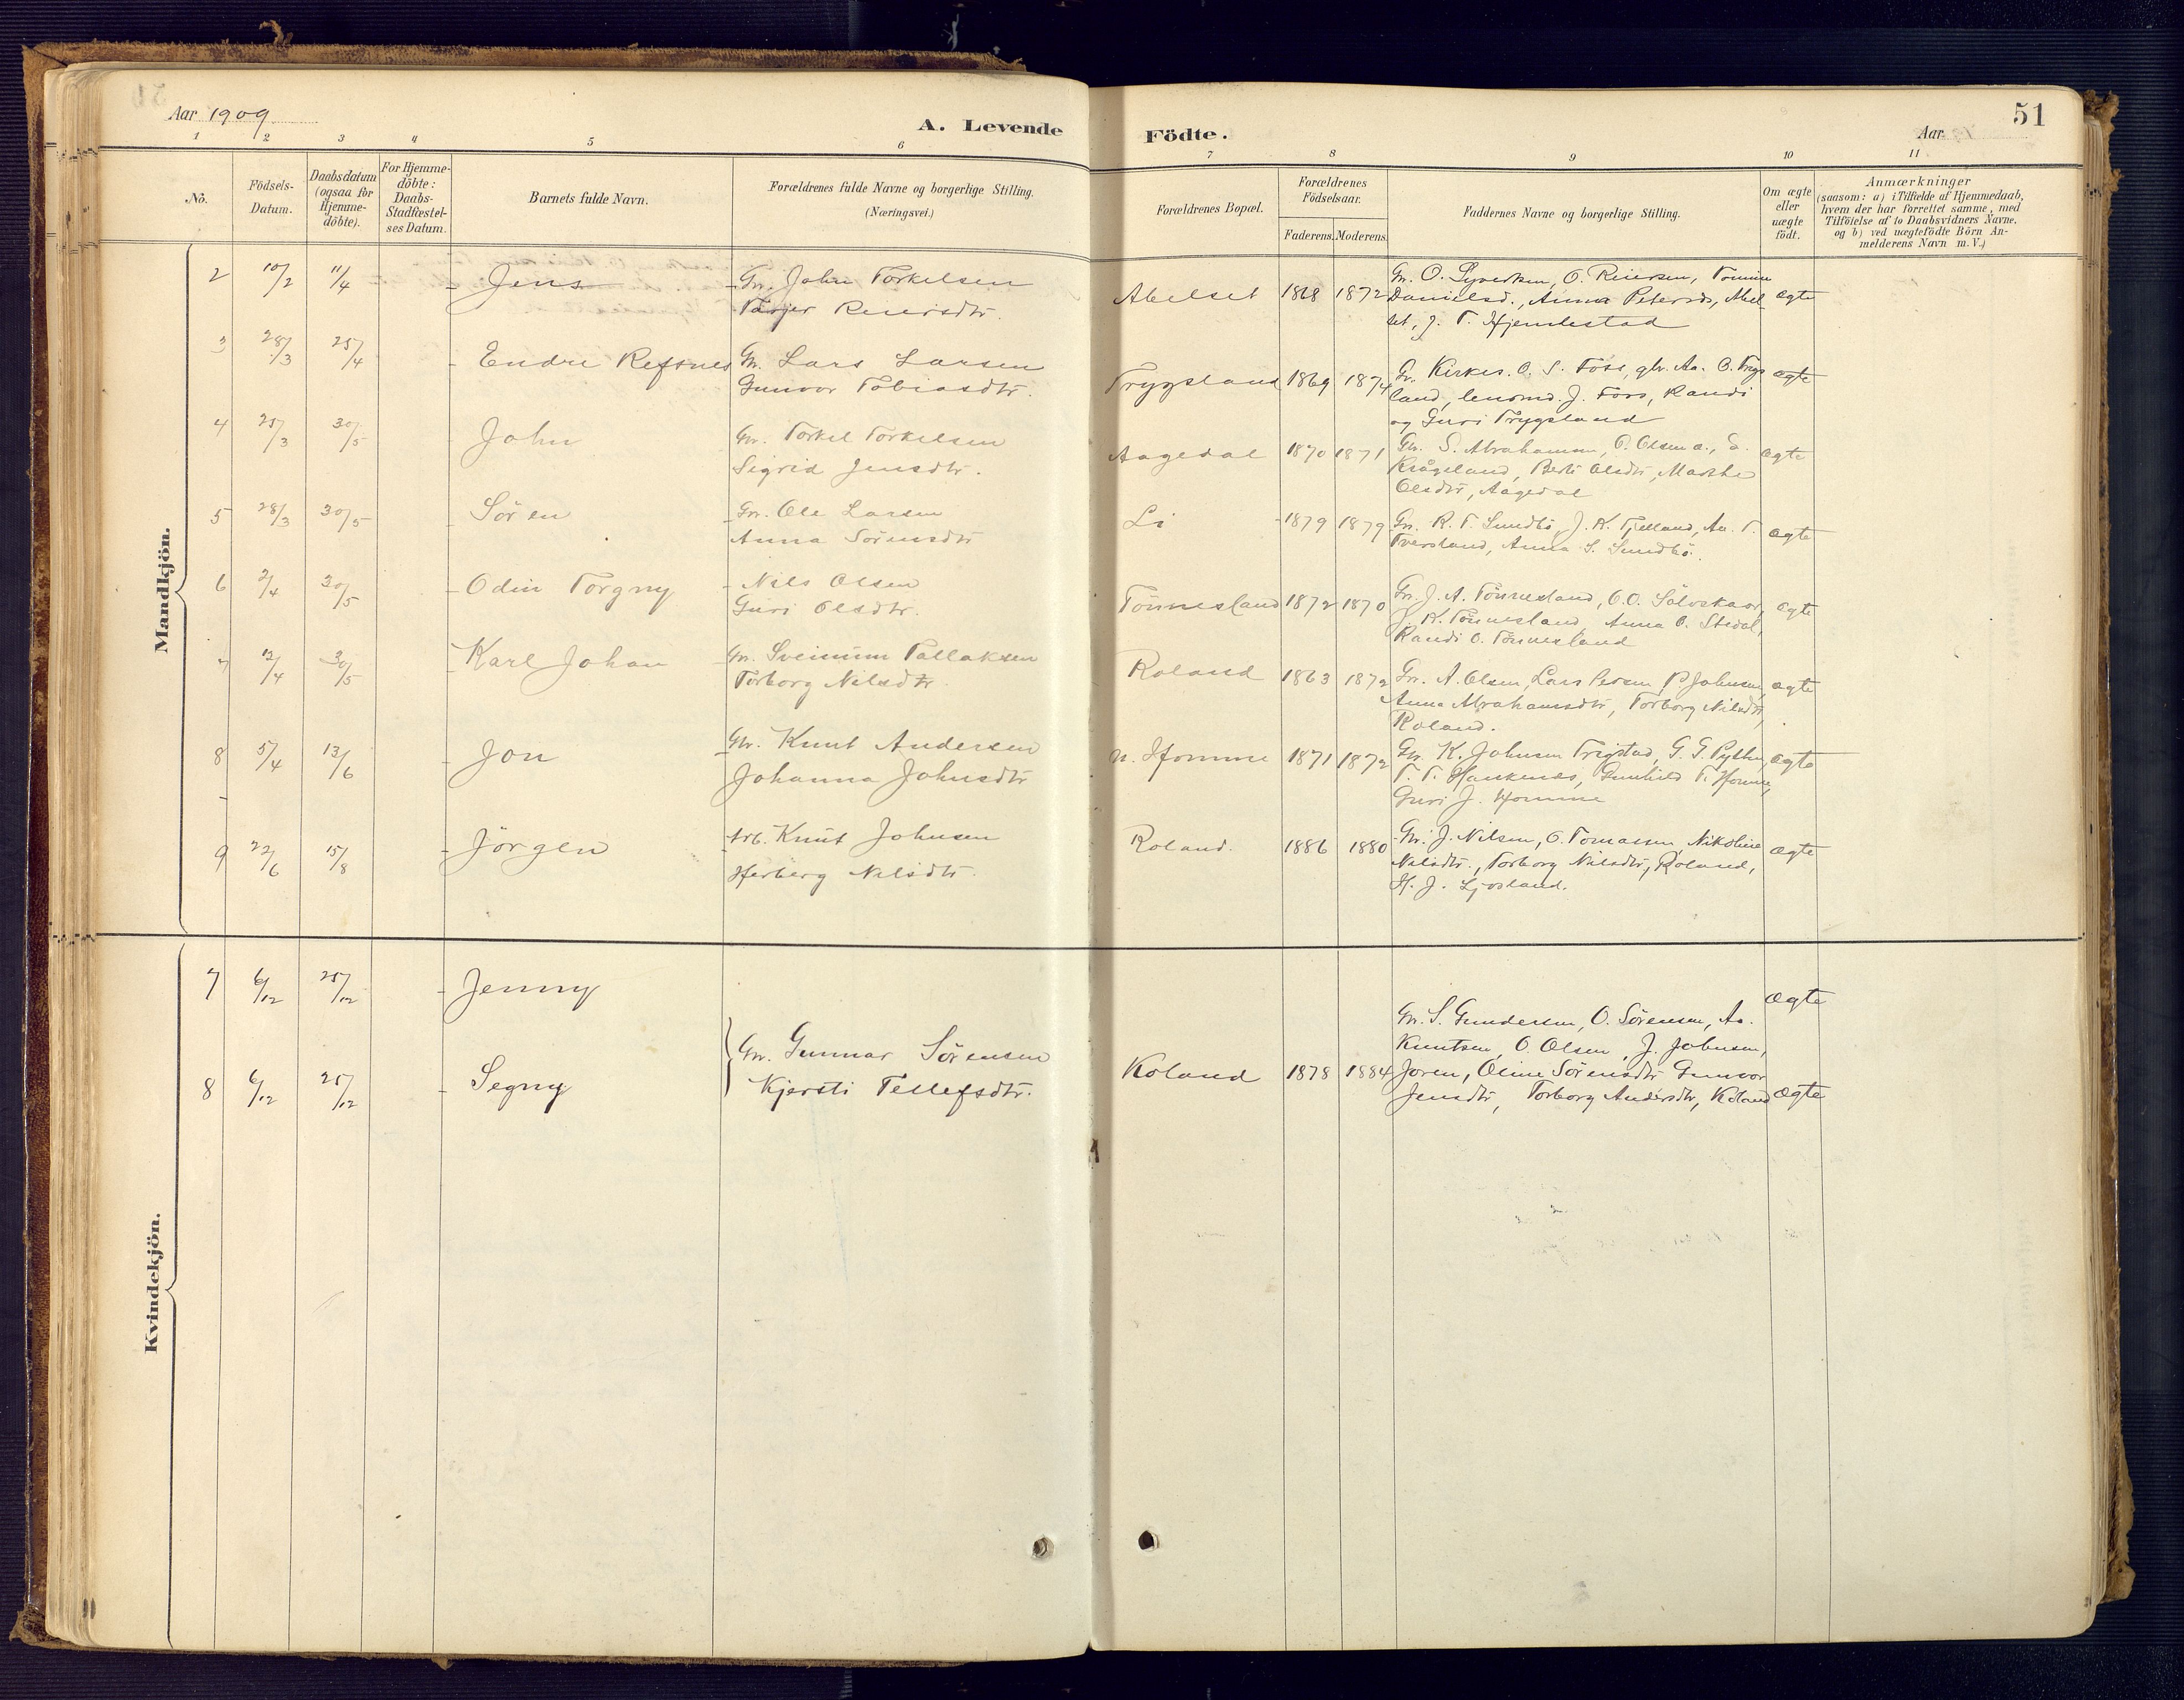 Aar 1909
A. Levende Födte.
Aar
51
1 2 3 4 5 6 7 8 9 10 11
No.
Födsels-
Datum.
Daabsdatum
(ogsaa for
Hjemme-
döbte).
For Hjemme-
döbte:
Daabs-
Stadfæstel-
ses Datum.
Barnets fulde Navn.
Forældrenes fulde Navne og borgerlige Stilling.
(Næringsvei.)
Forældrenes Bopæl.
Forældrenes
Födselsaar.
Faderens. Moderens.
Faddernes Navne og borgerlige Stilling.
Om ægte
eller
uægte
födt.
Anmærkninger
(saasom: a) i Tilfælde af Hjemmedaab,
hvem der har forrettet samme, med
Tilföielse af to Daabsvidners Navne.
og b) ved uægtefödte Börn An-
melderens Navn m. V.)
Mandkjön.
2 10/2 11/4 - Jens - Gr. John Torkelsen
Tarjer Reiersdtr.
Abelset 1868 1872
Gr. O. Syvertsen, O. Reiersen, Tomine
Danielsd., Anna Petersdr, Abel-
set, J. T. Hjemlestad
ægte
3 28/3 25/4 - Endre Refsnes Gr. Lars Larsen
Gunvor Tobiasdtr.
Trygsland 1869 1874
Gr. Kirkes. O. S. Foss, gbr. Aa. O. Trygs
land, lensmd. J. Foss, Randi
og Guri Trygsland
ægte
4 25/3 30/5 - John Gr. Torkel Torkelsen
Sigrid Jensdtr.
Aagedal 1870 1871
Gr. S. Abrahamsen, O. Olsen
Kragsland, Berte Olsdtr, Marthe
Olsdtr, Aagedal
ægte
5 28/3 30/5 - Sören - Gr. Ole Larsen
Anna Sörensdtr
Li 1879 1879
Gr. R. T. Sundbö J. K. Tjelland, Aa. T.
Tversland, Anna S. Sundbö.
ægte
6 2/4 30/5 - Odin Torgny - Nils Olsen
Guri Olsdtr.
Tönnesland 1872 1870
Gr. J. A. Tönnesland, O. O. Sölvskaar,
J. K. Tönnesland, Anna O. Stedal,
Randi O. Tönnesland
ægte
7 12/4 30/5 - Karl Johan - Gr. Sveinum Tallaksen
Torborg Nilsdtr
Roland 1863 1872
Gr. A. Olsen, Lars Persen, P. Johnsen,
Anna Abrahamsdtr, Torborg Nilsdtr,
Roland.
ægte
8 5/4 13/6 - Jon Gr. Knut Andersen
Johanna Johnsdtr
n. Homme 1871 1872
Gr. K. Johnsen Trigstad, G. G. Pytten,
T. T. Haukenes, Gunhild T. Homme,
Guri J. Homme
ægte
9 22/6 15/8 - Jörgen - Arb. Knut Johnsen
Herborg Nilsdtr.
Roland. 1886 1880
Gr. J. Nilsen, O. Tomassen, Nikoline
Nilsdtr., Torborg Nilsdtr, Roland,
H. J. Ljosland.
ægte
Kvindekjön.
7 6/12 25/12 - Jenny
ægte
8 6/12 25/12 - Segny
Gr. Gunnar Sörensen
Kjersti Tellefsdtr.
Koland 1878 1884
Gr. S. Gundersen, O. Sörensen, Aa.
Knutsen, O. Olsen, J. Johnsen,
Joren, Oline Sörensdtr Gunvor
Jensdtr, Torborg Andersdtr, Koland
ægte